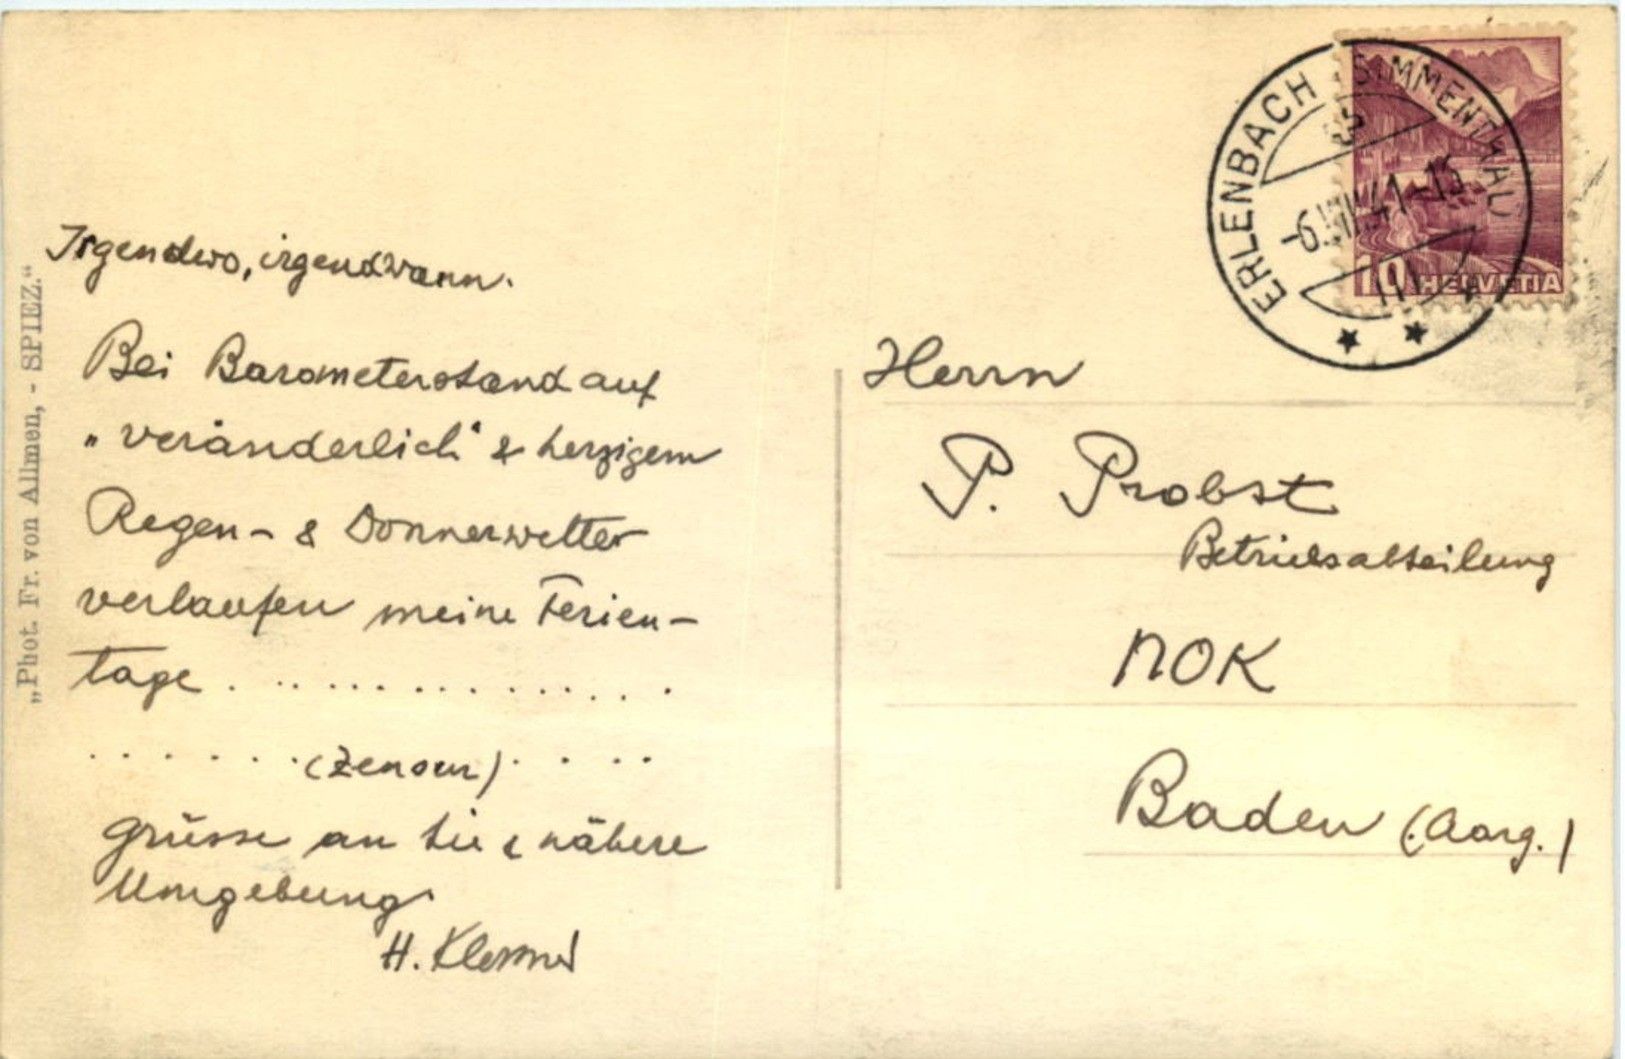 Irgendwo, irgendwann.
Bei Barometerstand auf
„veränderlich" & herzigem
Regen- & Donnerwetter
verlaufen meine Ferien-
tage . . . . . . . . . . . . . . . .
. . . . . . . (Zensur) . . . . .
Grüsse an Sie & nähere
Umgebung
H.
„Phot. Fr. von Allmen, - SPIEZ."
ERLENBACH (SIMMENTHAL)
-6.VIII.41-13
10 HELVETIA
Herrn
P. Probst
Betriebsabteilung
NOK
Baden (Aarg.)